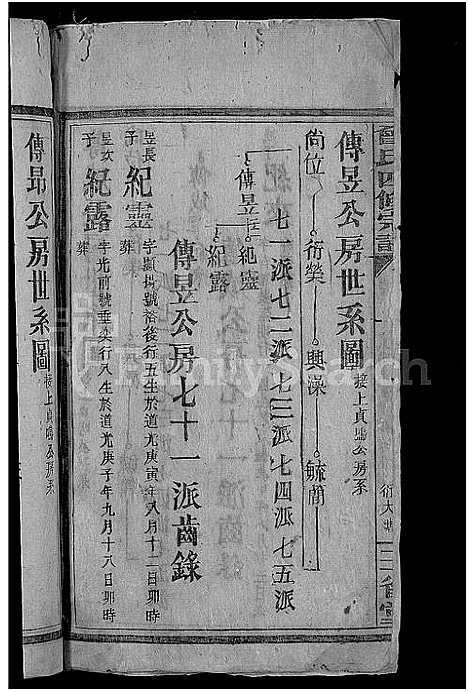 曾氏四修宗譜
傳昱公房世系圖 接上貞公房系
尙位 衍榮 興澡 毓蘭
七一派 七二派 七三派 七四派 七五派
傳昱 紀靈
紀露
傳昱公房七十一派齒錄
昱長子 紀靈 字顯揚號裕後行五生於道光庚寅年八月十二日卯時
葬
昱次子 紀露 字光前號垂尖行八生於道光庚子年九月十八日卯時
葬
傳昻公房世系圖 接上貞公房系
三省堂
FamilySearch